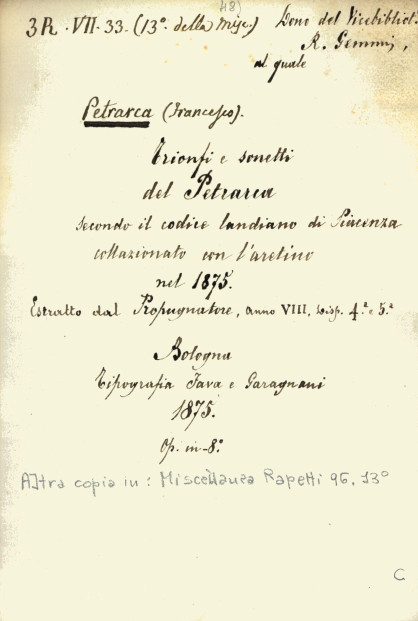 48)
3R.VII.33. (13º. della Misc.) Dono del Vicebibliot.
R. Gemmi,
al quale
Petrarca (Francesco).
Trionfi e sonetti
del Petrarca
secondo il codice landiano di Piacenza
collazionato con l'aretino
nel 1875.
Estratto dal Propugnatore, anno VIII, Disp. 4.ª e 5.ª
Bologna
Tipografia Fava e Garagnani
1875.
Op. in-8º
Altra copia in: Miscellanea Rapetti 96. 13º
C